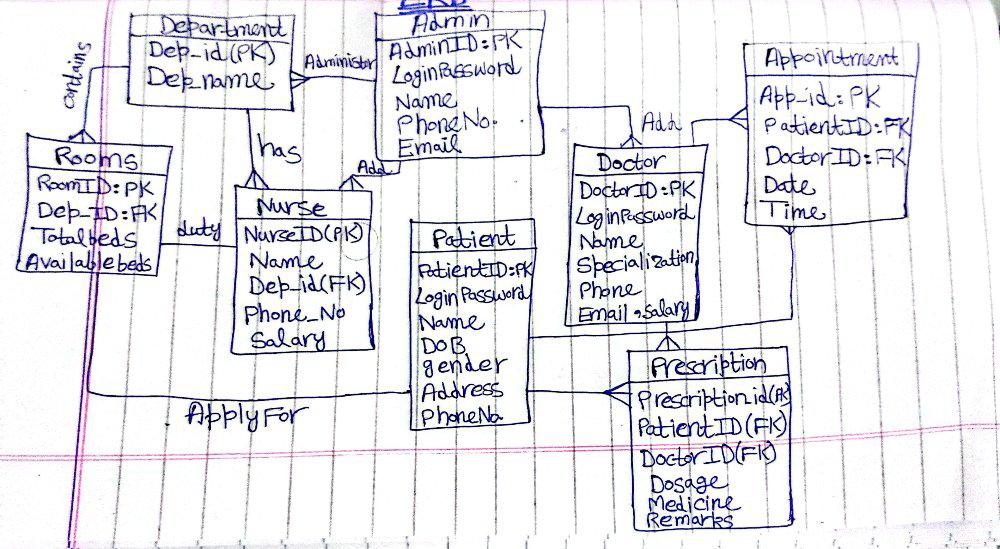 ERD
Department
Dep_id(PK)
Dep_name
Admin
AdminID:PK
LoginPassword
Name
PhoneNo.
Email
Appointment
App_id:PK
PatientID:FK
DoctorID:FK
Date
Time
contains
Administer
has
Add
Add
Rooms
RoomID:PK
Dep_ID:FK
Totalbeds
Availablebeds
duty
Nurse
NurseID(PK)
Name
Dep_id(FK)
Phone_No
Salary
Patient
PatientID:PK
LoginPassword
Name
DOB
gender
Address
PhoneNo
Doctor
DoctorID:PK
LoginPassword
Name
Specialization
Phone
Email, Salary
Prescription
Prescription_id(PK)
PatientID(FK)
DoctorID(FK)
Dosage
Medicine
Remarks
ApplyFor